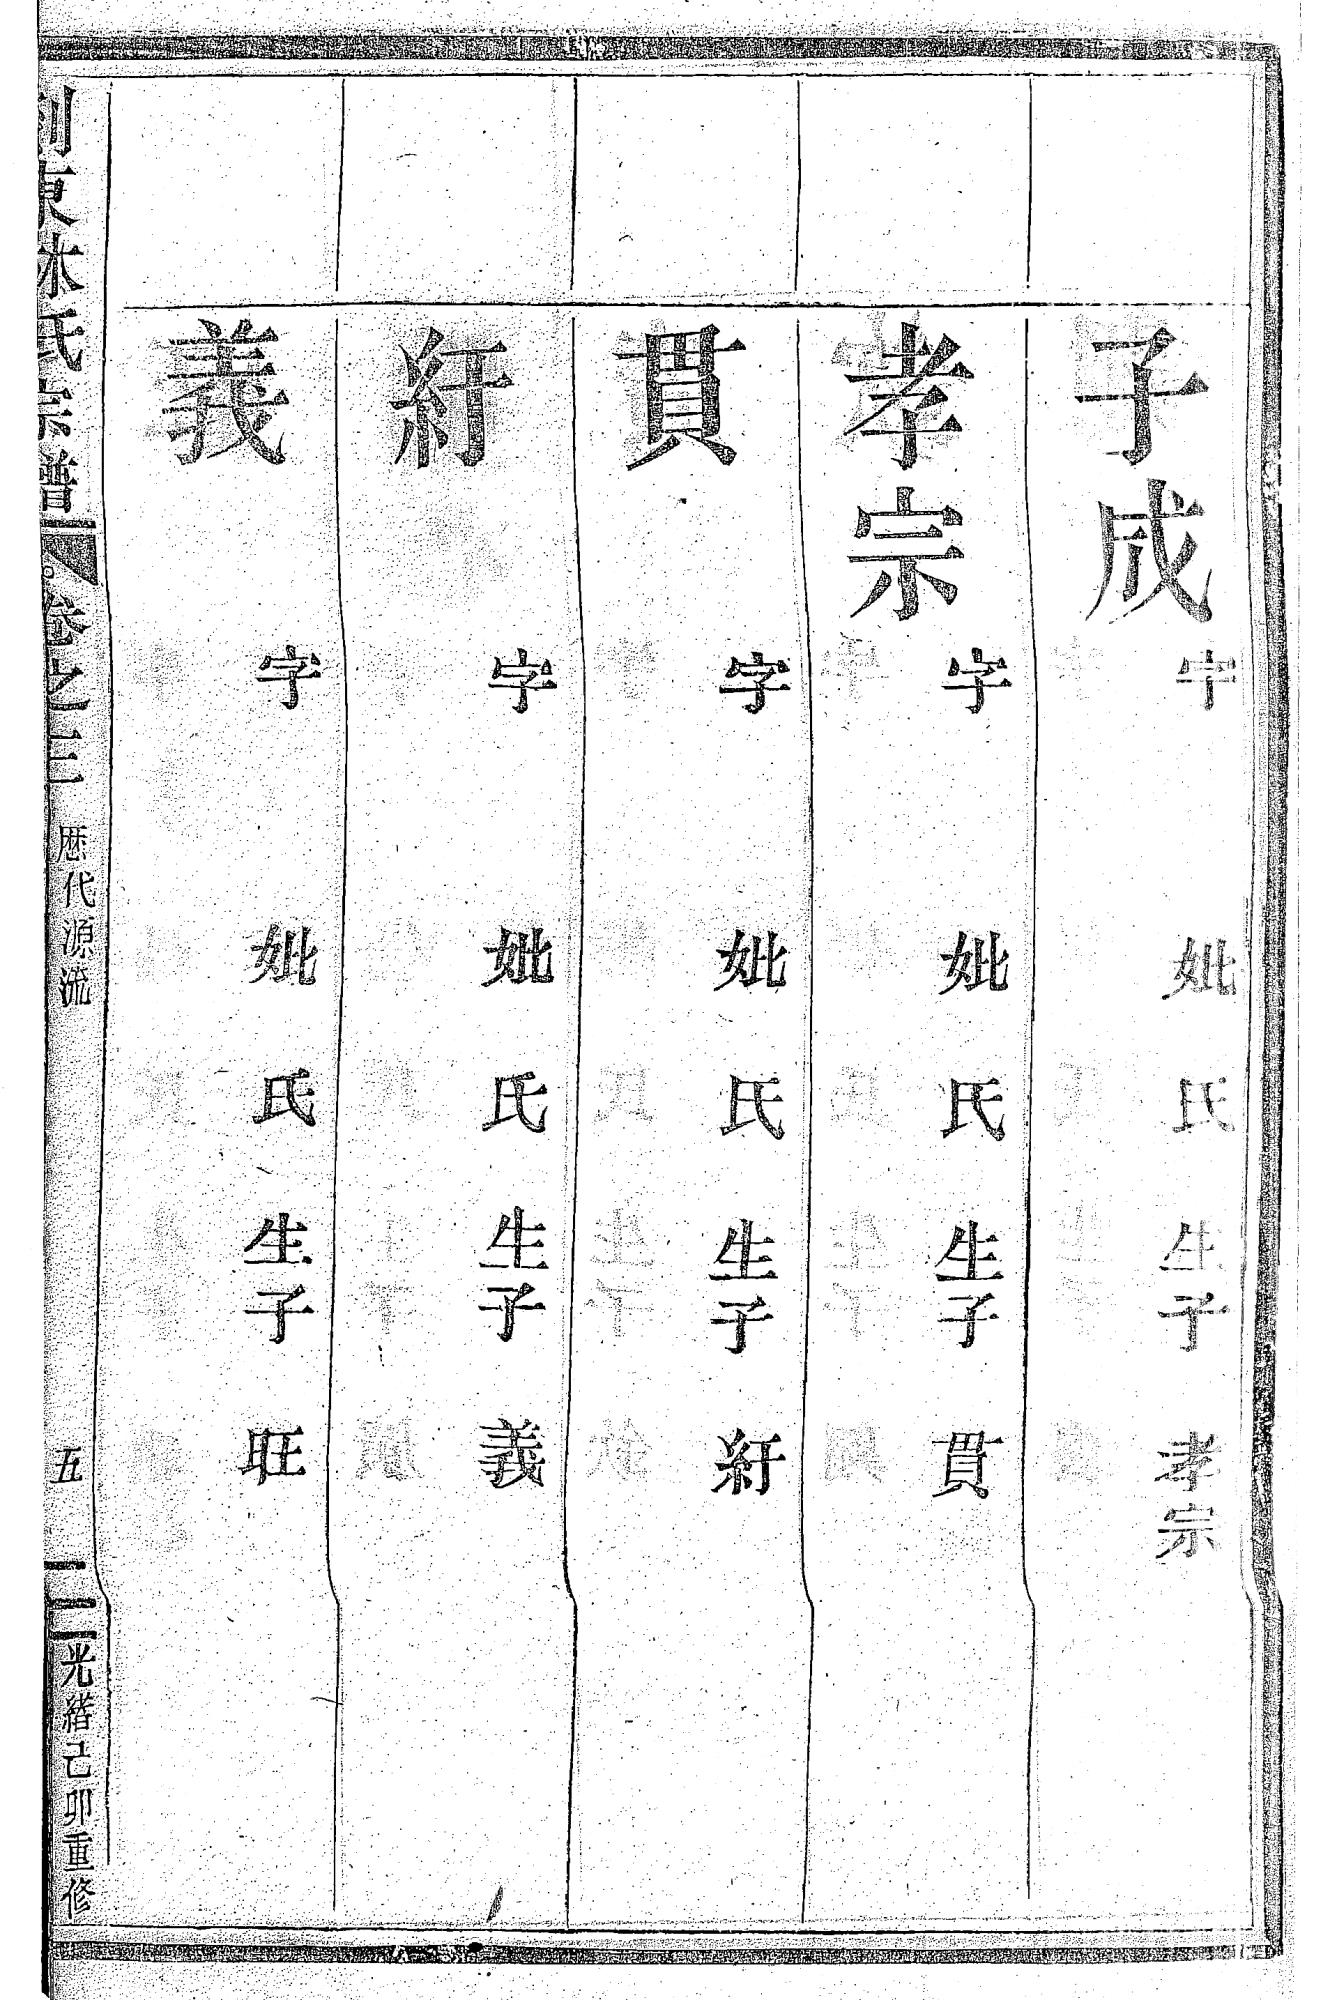 子成 字 妣 氏 生子 孝宗
孝宗 字 妣 氏 生子 貫
貫 字 妣 氏 生子 紆
紆 字 妣 氏 生子 義
義 字 妣 氏 生子 旺
東林氏宗譜 卷之 歴代源流 五 光緒己卯重修